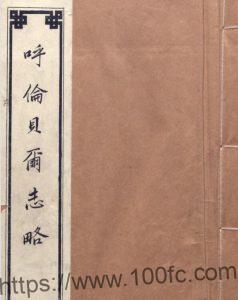 呼倫貝爾志略
https://www.100fc.com